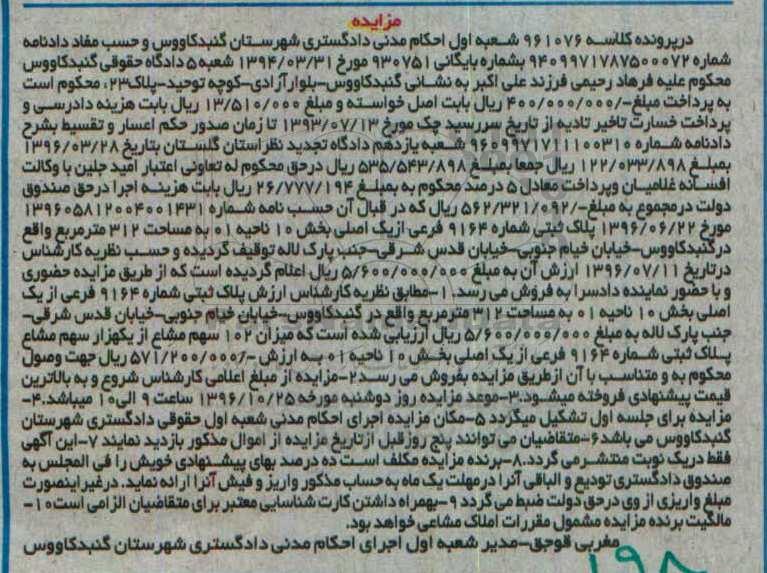 مزایده
درپرونده کلاسه ۹۶۱۰۷۶ شعبه اول احکام مدنی دادگستری شهرستان گنبدکاووس و حسب مفاد دادنامه
شماره ۹۴۰۹۹۷۱۷۸۷۵۰۰۰۷۲ بشماره بایگانی ۹۳۰۷۵۱ مورخ ۱۳۹۴/۰۳/۳۱ شعبه ۵ دادگاه حقوقی گنبدکاووس
محکوم علیه فرهاد رحیمی فرزند علی اکبر به نشانی گنبدکاووس-بلوارآزادی-کوچه توحید-پلاک۲۳، محکوم است
به پرداخت مبلغ-/۴۰۰/۰۰۰/۰۰۰ ریال بابت اصل خواسته و مبلغ ۱۳/۵۱۰/۰۰۰ ریال بابت هزینه دادرسی و
پرداخت خسارت تاخیر تادیه از تاریخ سررسید چک مورخ ۱۳۹۳/۰۷/۱۳ تا زمان صدور حکم اعسار و تقسیط بشرح
دادنامه شماره ۹۶۰۹۹۷۱۷۱۱۱۰۰۳۱۰ شعبه یازدهم دادگاه تجدید نظراستان گلستان بتاریخ ۱۳۹۶/۰۳/۲۸
بمبلغ ۱۲۲/۰۳۳/۸۹۸ ریال جمعا بمبلغ ۵۳۵/۵۴۳/۸۹۸ ریال درحق محکوم له تعاونی اعتبار امید جلین با وکالت
افسانه غلامیان وپرداخت معادل ۵ درصد محکوم به بمبلغ ۲۶/۷۷۷/۱۹۴ ریال بابت هزینه اجرا درحق صندوق
دولت درمجموع به مبلغ-/۵۶۲/۳۲۱/۰۹۲ ریال که در قبال آن حسب نامه شماره ۱۳۹۶۰۵۸۱۲۰۰۴۰۰۱۴۳۱
مورخ ۱۳۹۶/۰۶/۲۲ پلاک ثبتی شماره ۹۱۶۴ فرعی ازیک اصلی بخش ۱۰ ناحیه ۰۱ به مساحت ۳۱۲ مترمربع واقع
درگنبدکاووس-خیابان خیام جنوبی-خیابان قدس شرقی-جنب پارک لاله توقیف گردیده و حسب نظریه کارشناس
درتاریخ ۱۳۹۶/۰۷/۱۱ ارزش آن به مبلغ ۵/۶۰۰/۰۰۰/۰۰۰ ریال اعلام گردیده است که از طریق مزایده حضوری
و با حضور نماینده دادسرا به فروش می رسد.۱-مطابق نظریه کارشناس ارزش پلاک ثبتی شماره ۹۱۶۴ فرعی از یک
اصلی بخش ۱۰ ناحیه ۰۱ به مساحت ۳۱۲ مترمربع واقع در گنبدکاووس-خیابان خیام جنوبی-خیابان قدس شرقی-
جنب پارک لاله به مبلغ ۵/۶۰۰/۰۰۰/۰۰۰ ریال ارزیابی شده است که میزان ۱۰۲ سهم مشاع از یکهزار سهم مشاع
پلاک ثبتی شماره ۹۱۶۴ فرعی از یک اصلی بخش ۱۰ ناحیه ۰۱ به ارزش -/۵۷۱/۲۰۰/۰۰۰ ریال جهت وصول
محکوم به و متناسب با آن ازطریق مزایده بفروش می رسد۲-مزایده از مبلغ اعلامی کارشناس شروع و به بالاترین
قیمت پیشنهادی فروخته میشود.۳-موعد مزایده روز دوشنبه مورخه ۱۳۹۶/۱۰/۲۵ ساعت ۹ الی۱۰ میباشد.۴-
مزایده برای جلسه اول تشکیل میگردد ۵-مکان مزایده اجرای احکام مدنی شعبه اول حقوقی دادگستری شهرستان
گنبدکاووس می باشد۶-متقاضیان می توانند پنج روزقبل ازتاریخ مزایده از اموال مذکور بازدید نمایند ۷-این آگهی
فقط دریک نوبت منتشرمی گردد.۸-برنده مزایده مکلف است ده درصد بهای پیشنهادی خویش را فی المجلس به
صندوق دادگستری تودیع و الباقی آنرا درمهلت یک ماه به حساب مذکور واریز و فیش آنرا ارائه نماید. درغیراینصورت
مبلغ واریزی از وی درحق دولت ضبط می گردد ۹-بهمراه داشتن کارت شناسایی معتبر برای متقاضیان الزامی است۱۰-
مالکیت برنده مزایده مشمول مقررات املاک مشاعی خواهد بود.
مغربی قوجق-مدیر شعبه اول اجرای احکام مدنی دادگستری شهرستان گنبدکاووس